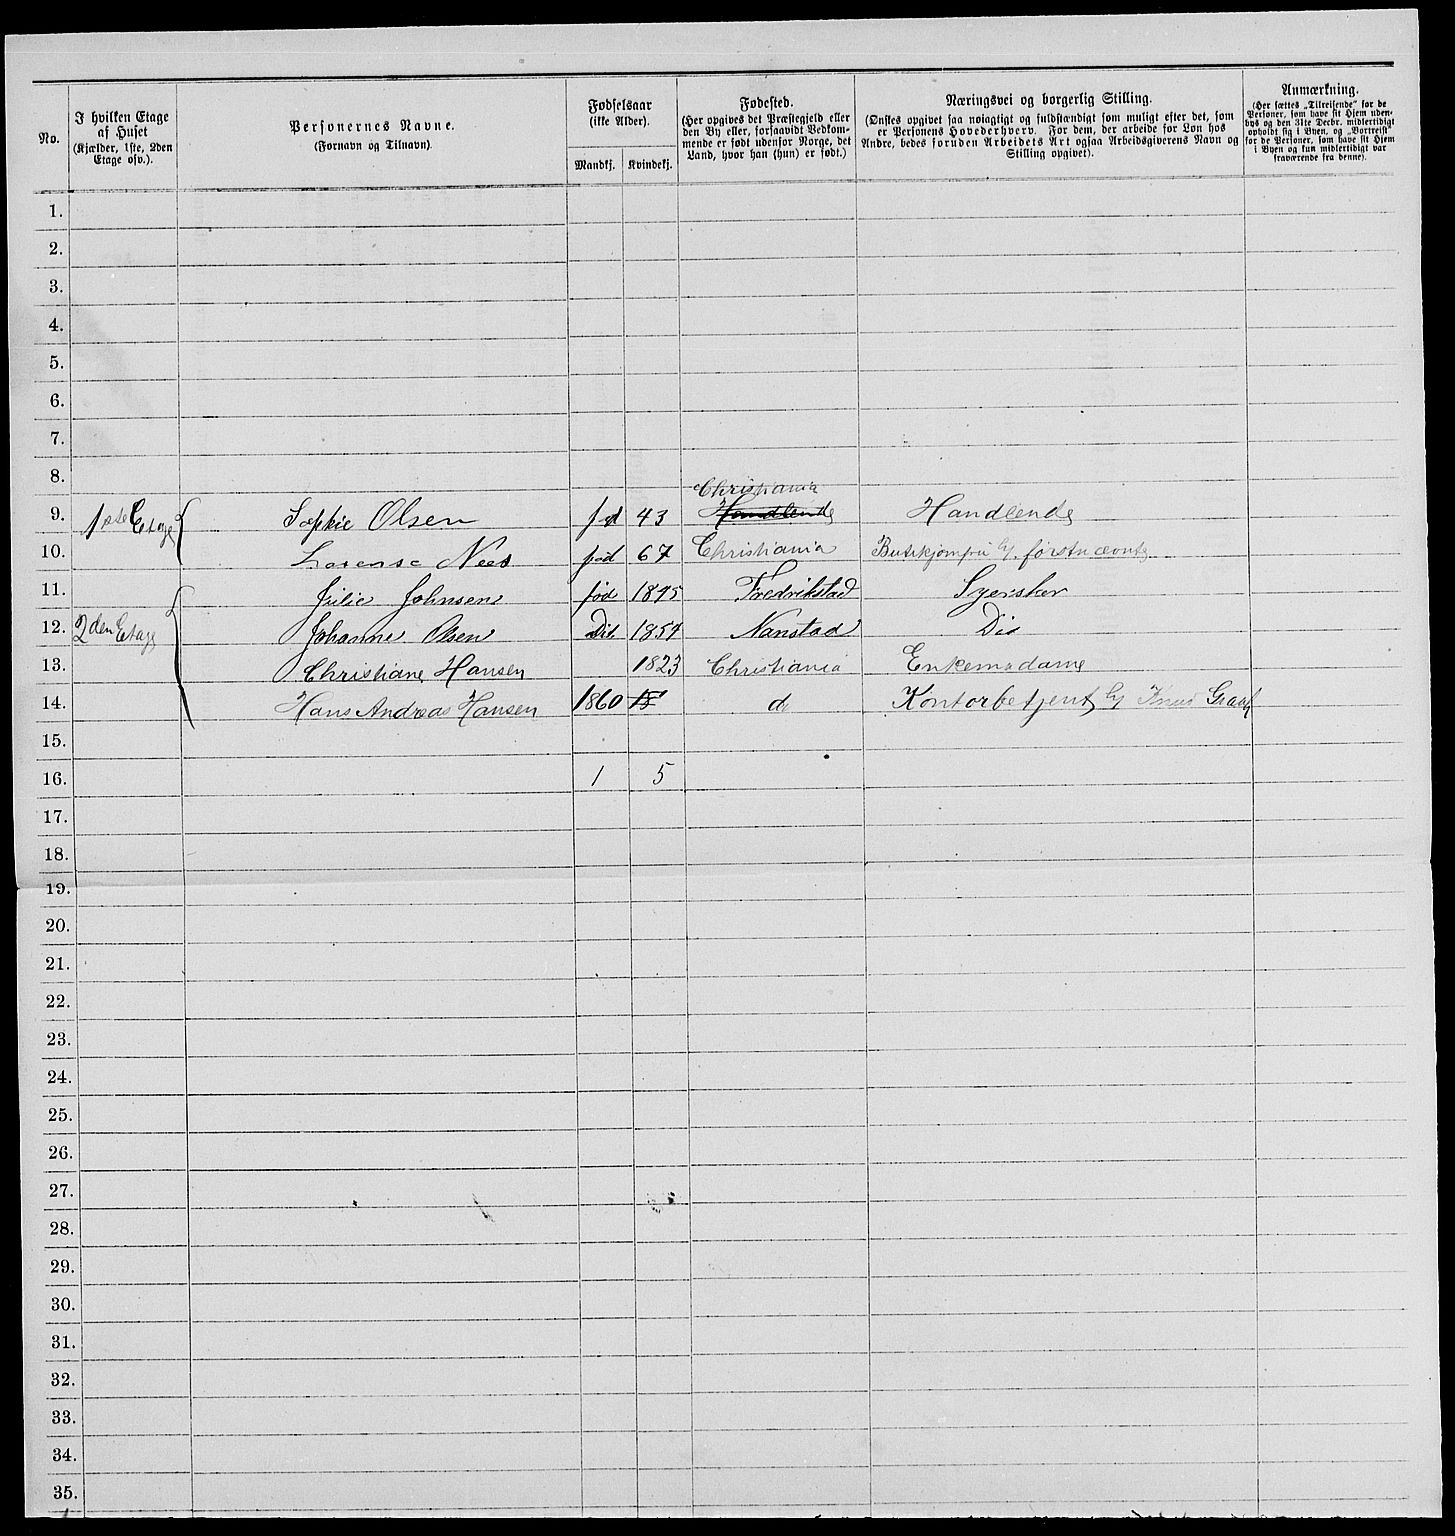 No.
I hvilken Etage af Huset (Kjælder, 1ste, 2den Etage osv.).
Personernes Navne. (Fornavn og Tilnavn).
Fødselsaar (ikke Alder).
Mandkj. Kvindekj.
Fødested. (Her opgives det Præstegjeld eller den By eller, forsaavidt Vedkommende er født udenfor Norge, det Land, hvor han (hun) er født.)
Næringsvei og borgerlig Stilling. (Ønskes opgivet saa nøiagtigt og fuldstændigt som muligt efter det, som er Personens Hovederhverv. For dem, der arbeide for Løn hos Andre, bedes foruden Arbeidets Art ogsaa Arbeidsgiverens Navn og Stilling opgivet).
Anmærkning. (Her sættes „Tilreisende“ for de Personer, som have sit Hjem udenbys og den 31te Decbr. midlertidigt opholdt sig i Byen, og „Bortreist“ for de Personer, som have sit Hjem i Byen og kun midlertidigt var fraværende fra denne).
1.
2.
3.
4.
5.
6.
7.
8.
Christiania
9. 1ste Etage Sophie Olsen fød 43 Handlende Handlende
10. Lorense Nees fød 67 Christiania Butikjomfru hj. førstnævnte
11. Julie Johnsen fød 1845 Fredrikstad Syersker
12. 2den Etage Johanne Olsen Dit. 1854 Nanstad Dis
13. Christiane Hansen 1823 Christiania Enkemadame
14. Hans Andreas Hansen 1860 d Kontorbetjent hj
15.
16. 1 5
17.
18.
19.
20.
21.
22.
23.
24.
25.
26.
27.
28.
29.
30.
31.
32.
33.
34.
35.